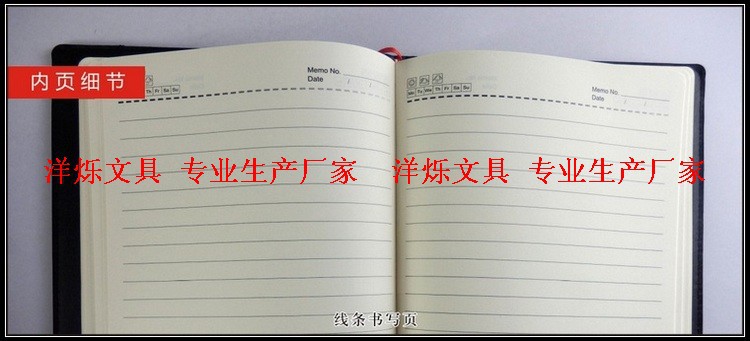 内页细节
Memo No.
Date / /
Th Fr Sa Su
Memo No.
Date / /
Mo Tu We Th Fr Sa Su
洋烁文具 专业生产厂家 洋烁文具 专业生产厂家
线条书写页